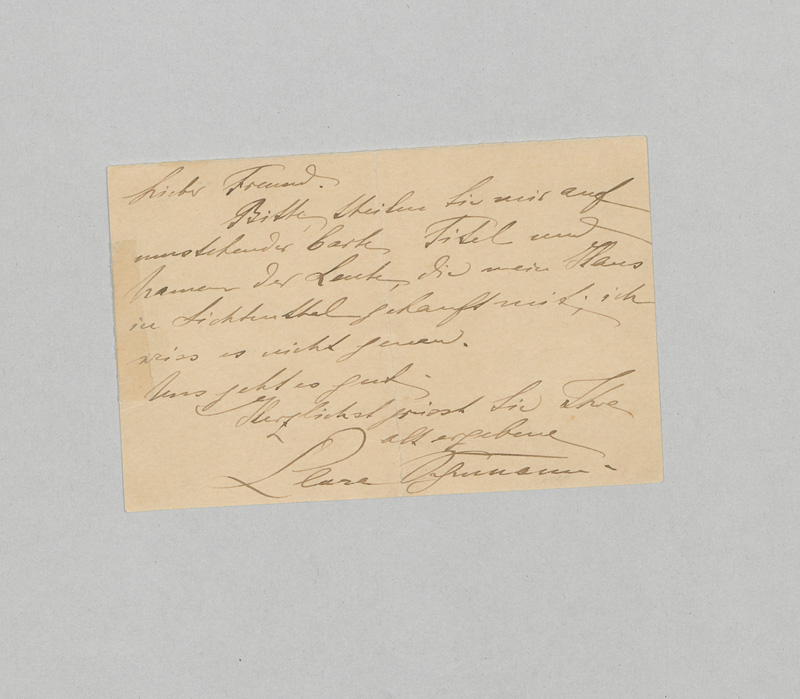 Lieber Freund.
Bitte, theilen Sie mir auf
umstehender Carte Titel und
Namen der Leute, die mein Haus
in Lichtenthal gekauft mit; ich
weiss es nicht genau.
Uns geht es gut.
Herzlichst grüsst Sie Ihre
alt ergebene
Clara Schumann.